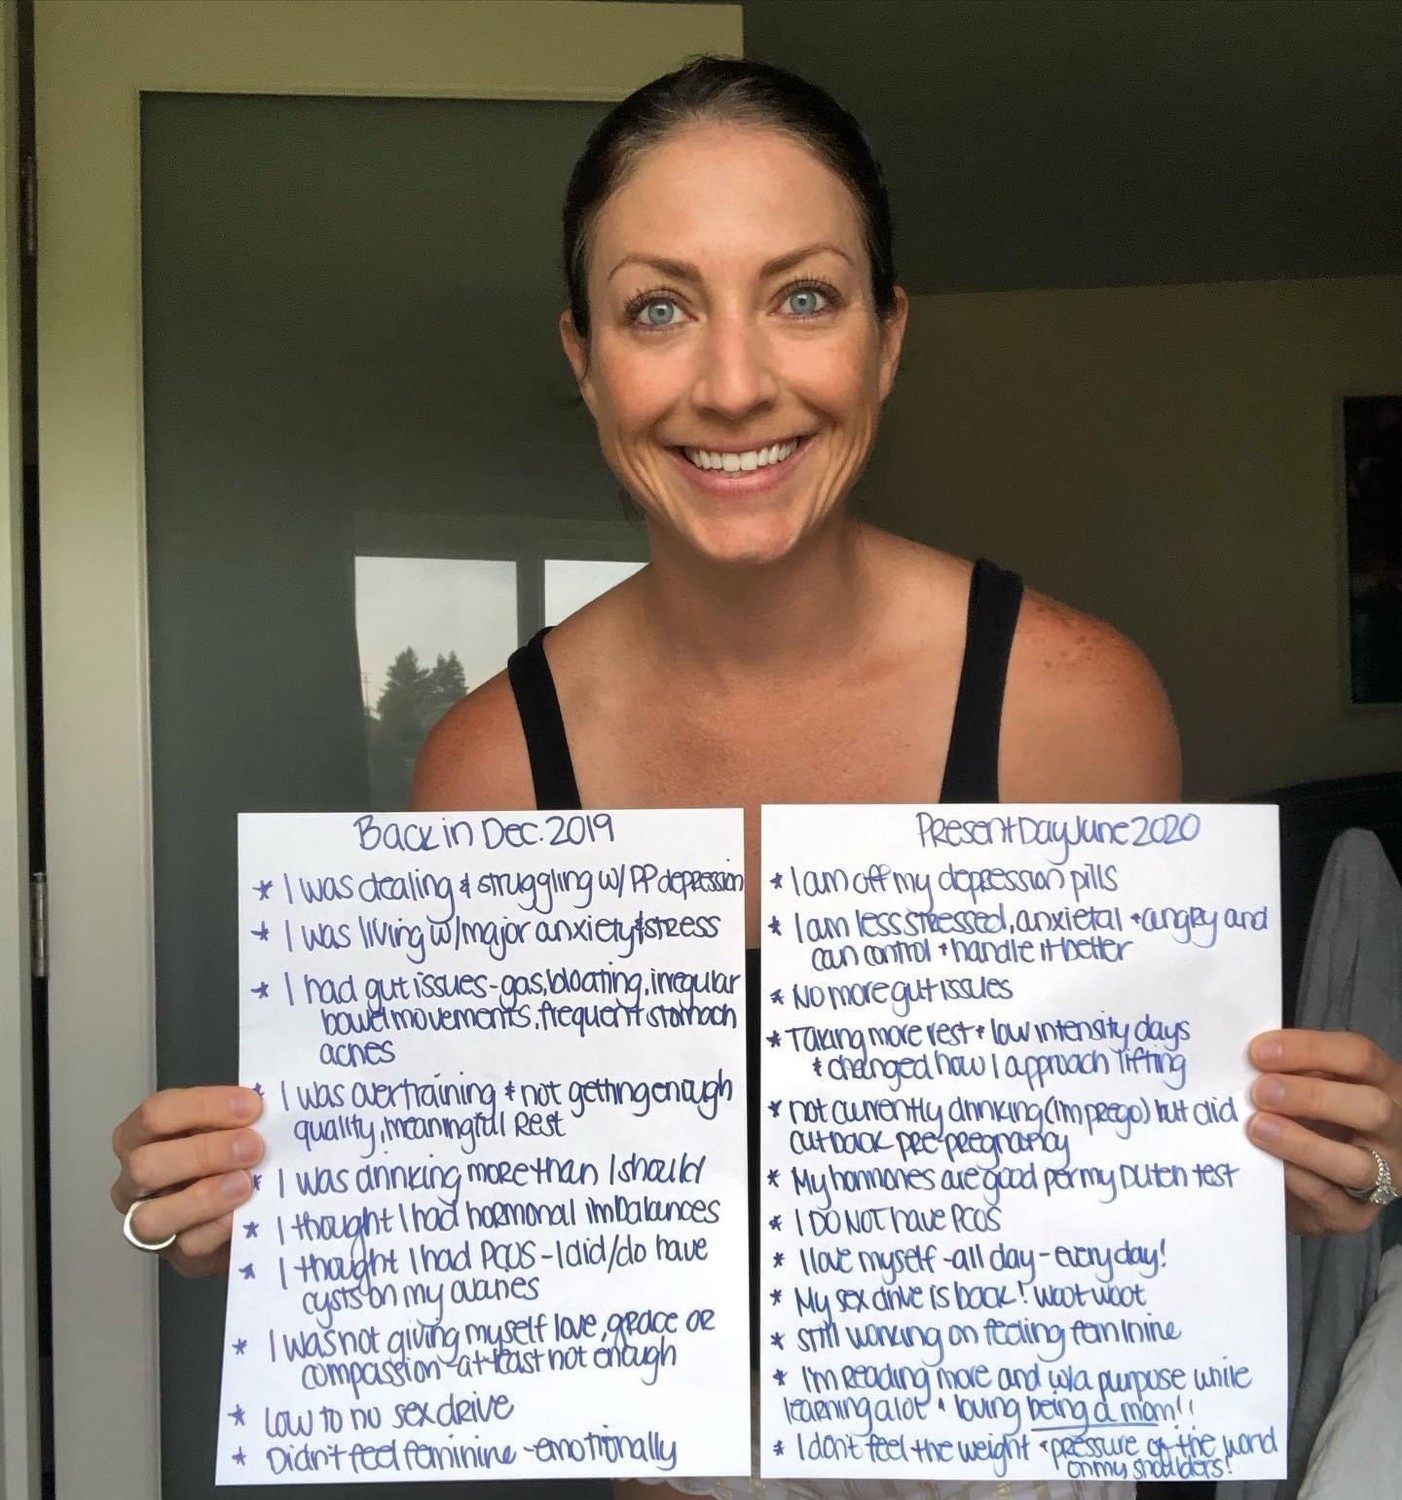 Back in Dec. 2019
* I was dealing & struggling w/ PP depression
* I was living w/major anxiety & stress
* I had gut issues - gas, bloating, irregular
bowel movements, frequent stomach
aches
* I was overtraining & not getting enough
quality, meaningful Rest
* I was drinking more than I should
* I thought I had hormonal imbalances
* I thought I had PCOS - I did/do have
cysts on my ovaries
* I was not giving myself love, grace or
compassion - at least not enough
* Low to no sex drive
* Didn't feel feminine - emotionally
Present Day June 2020
* I am off my depression pills
* I am less stressed, anxietal + angry and
can control + handle it better
* No more gut issues
* Taking more rest + low intensity days
+ changed how I approach lifting
* not currently drinking (I'm prego) but did
cut back pre-pregnancy
* My hormones are good per my Dutch test
* I DO NOT have PCOS
* I love myself - all day - everyday!
* My sex drive is back! woot woot
* Still working on feeling feminine
* I'm reading more and w/a purpose while
learning a lot + loving being a mom!!
* I don't feel the weight + pressure of the world
on my shoulders!